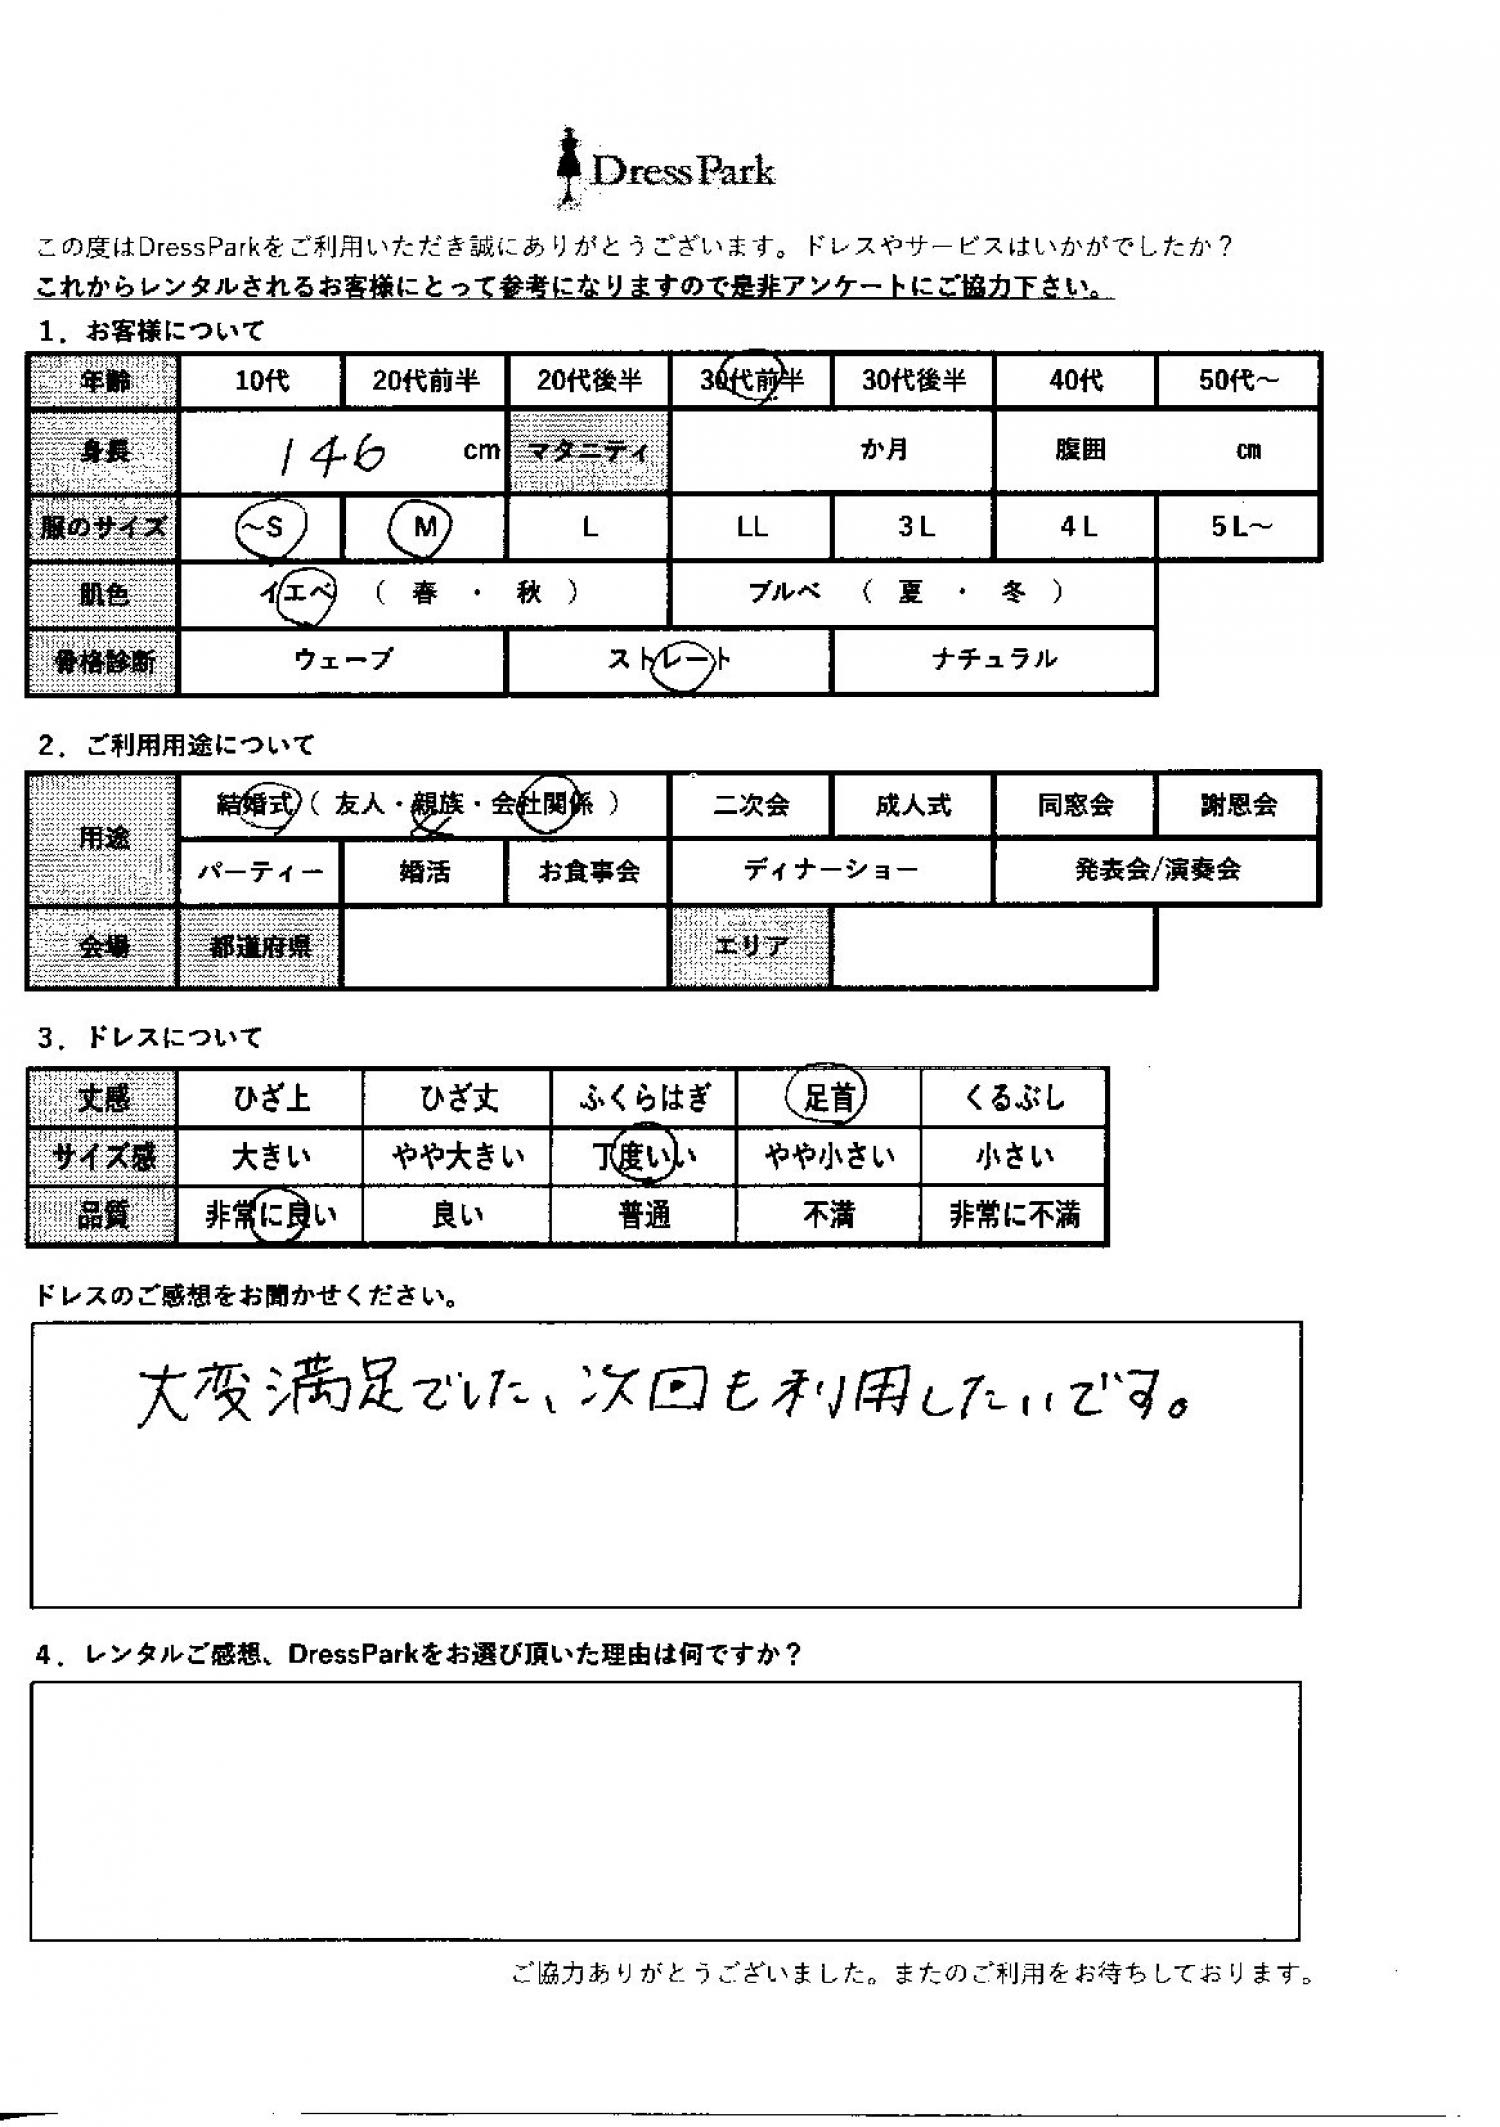 DressPark
この度はDressParkをご利用いただき誠にありがとうございます。ドレスやサービスはいかがでしたか？
これからレンタルされるお客様にとって参考になりますので是非アンケートにご協力下さい。
1．お客様について
年齢 10代 20代前半 20代後半 30代前半 30代後半 40代 50代～
身長 146 cm マタニティ か月 腹囲 cm
服のサイズ ～S M L LL 3L 4L 5L～
肌色 イエベ （ 春 ・ 秋 ） ブルベ （ 夏 ・ 冬 ）
骨格診断 ウェーブ ストレート ナチュラル
2．ご利用用途について
用途 結婚式（ 友人・親族・会社関係 ） 二次会 成人式 同窓会 謝恩会
パーティー 婚活 お食事会 ディナーショー 発表会/演奏会
会場 都道府県 エリア
3．ドレスについて
丈感 ひざ上 ひざ丈 ふくらはぎ 足首 くるぶし
サイズ感 大きい やや大きい 丁度いい やや小さい 小さい
品質 非常に良い 良い 普通 不満 非常に不満
ドレスのご感想をお聞かせください。
大変満足でした、次回も利用したいです。
4．レンタルご感想、DressParkをお選び頂いた理由は何ですか？
ご協力ありがとうございました。またのご利用をお待ちしております。